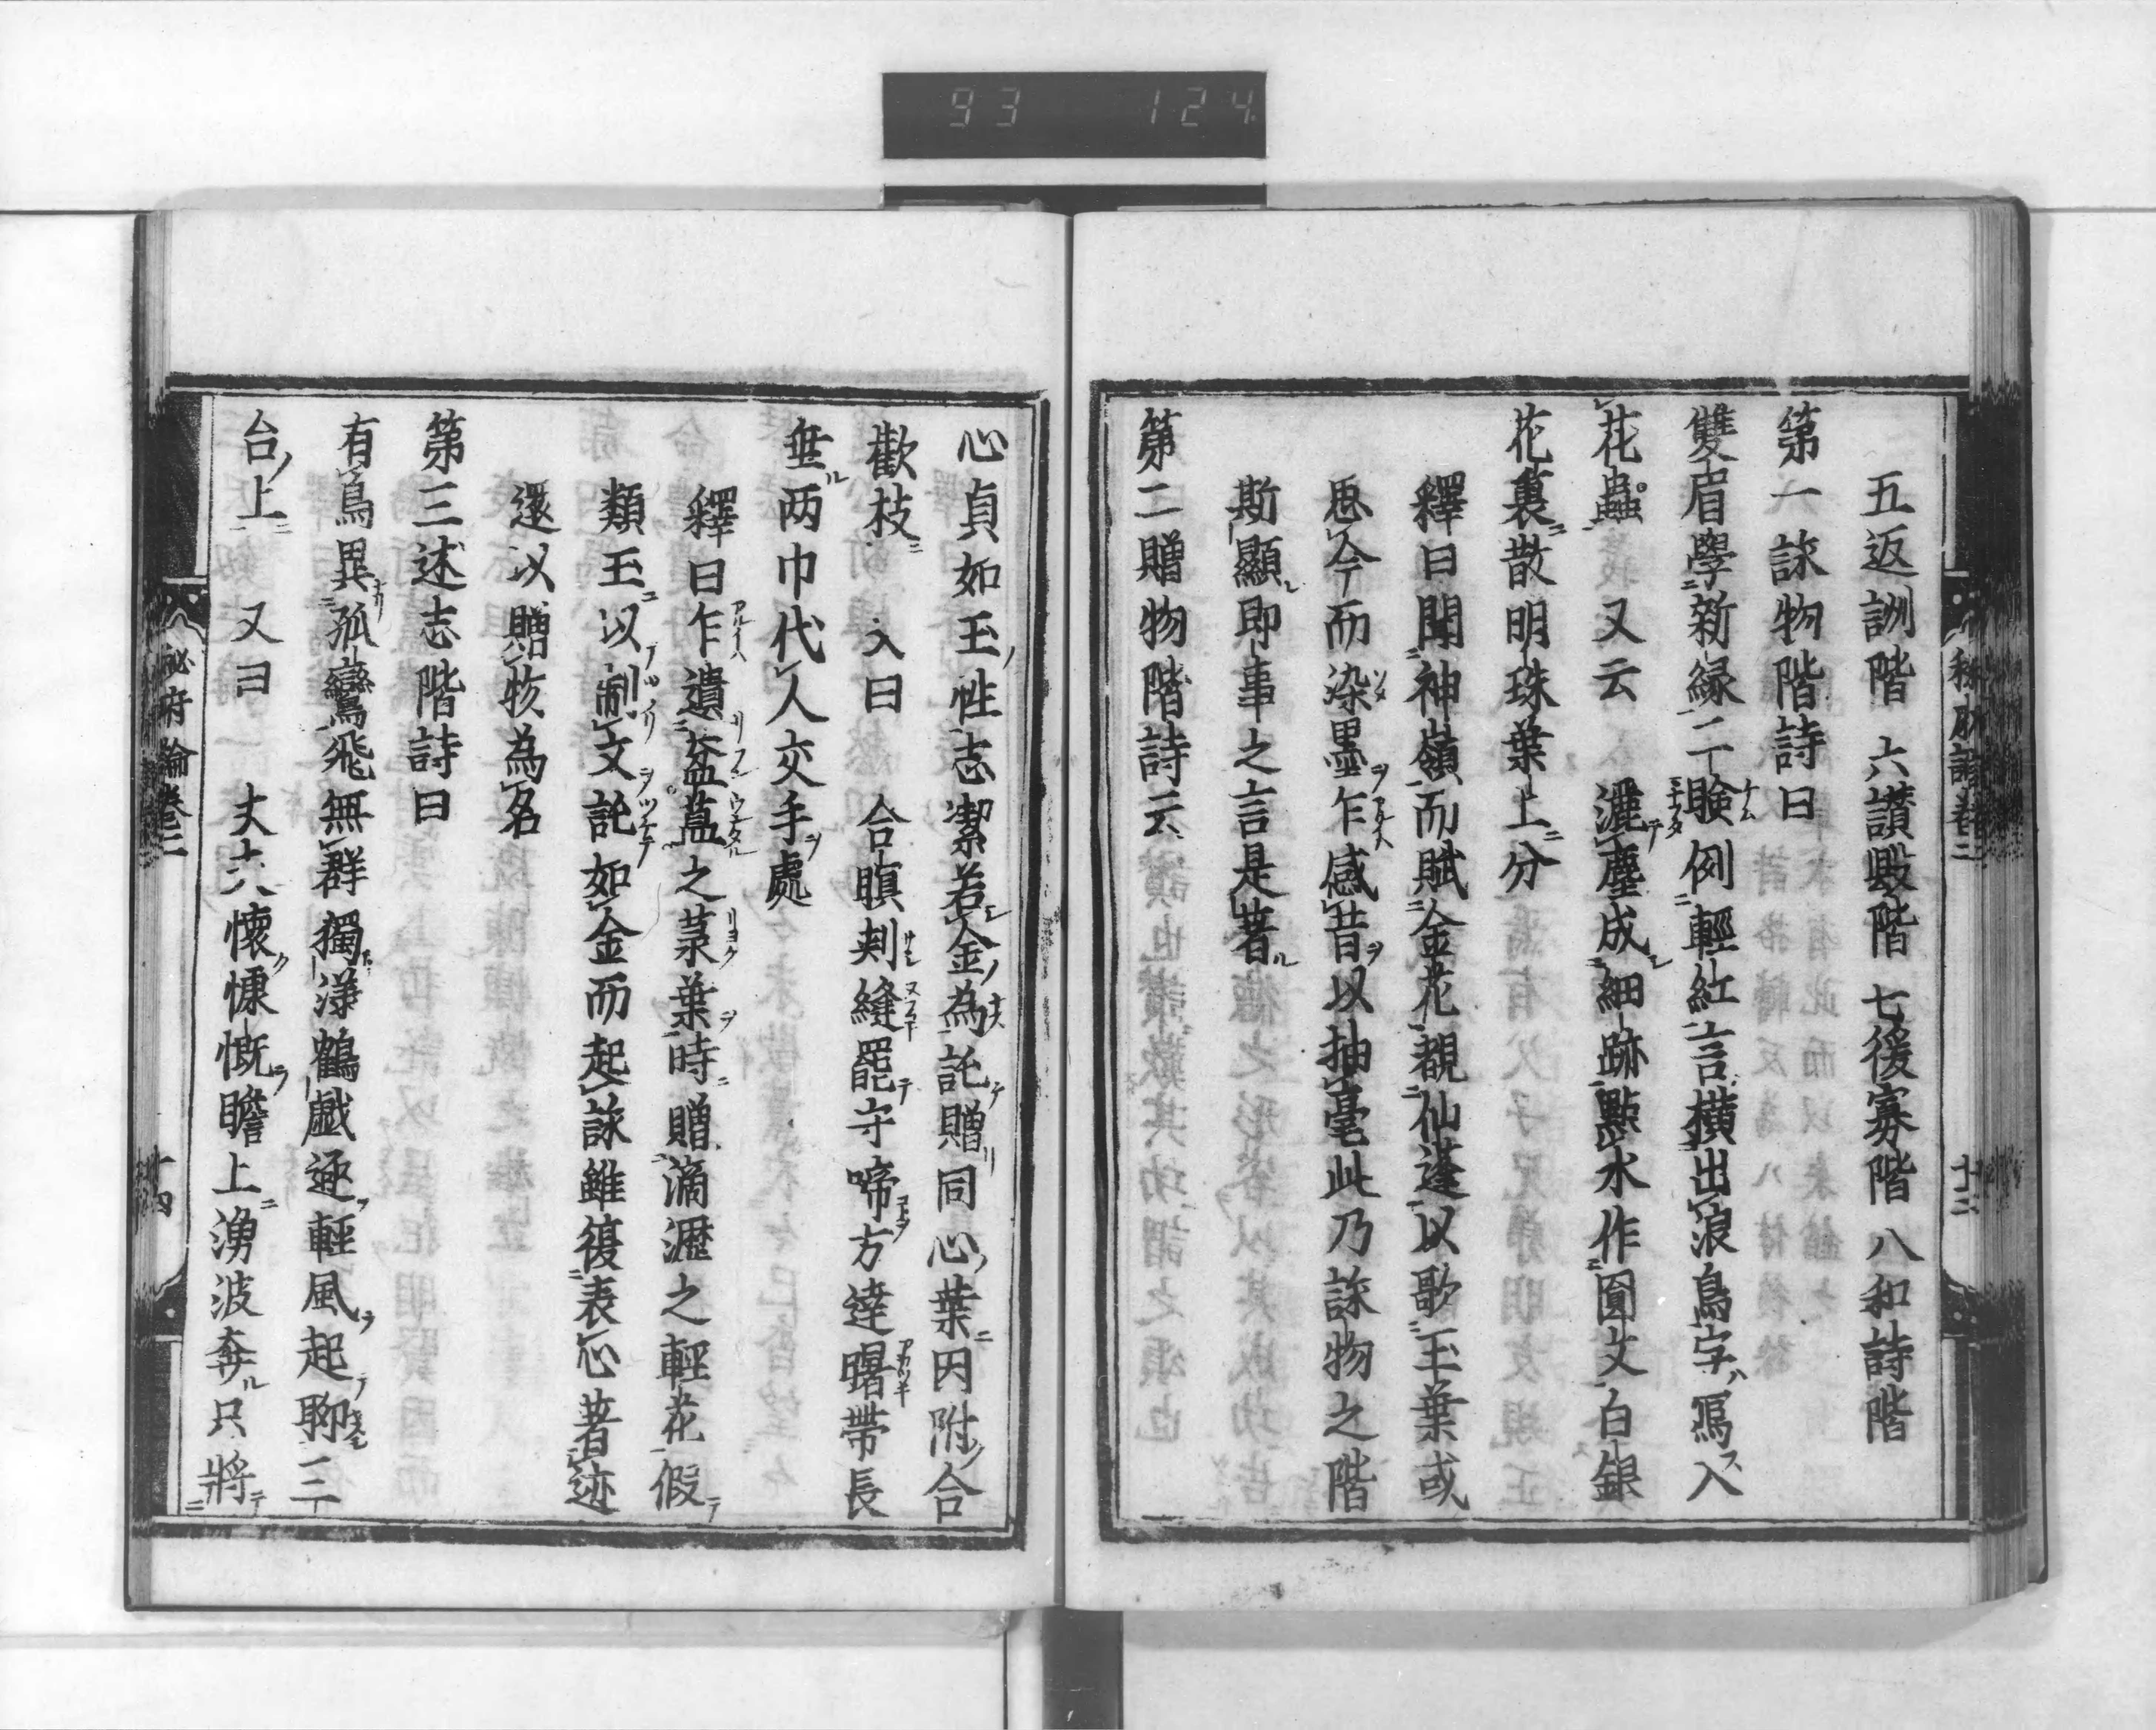 五返訓階 六讃毀階 七後寡階 八和詩階
第一詠物階詩曰
雙眉學新緑二瞼例輕紅言横出浪鳥字寫入
花蟲 又云 灑塵成細跡點水作圓文白銀
花裏散明珠葉上分
釋曰聞神嶺而賦金花覩仙蓬以歌玉葉或
思今而染墨乍感昔以抽毫此乃詠物之階
斯顯即事之言是著
第二贈物階詩云
心貞如玉性志潔若金為託贈同心葉因附合
歡枝 又曰 合瞑刾縫罷守啼方達曙帶長
垂两巾代人交手處
釋曰乍遺葢之菉葉時贈滴瀝之輕花假
類玉以制文託如金而起詠雖復表心著迹
還以贈物為名
第三述志階詩曰
有鳥異孤鸞飛無群獨漾鶴戯逐輕風起聊三
台上 又曰 丈六懷慷慨瞻上湧波奔只將
秘府論卷三
十三
秘府論卷三
十四
93 124